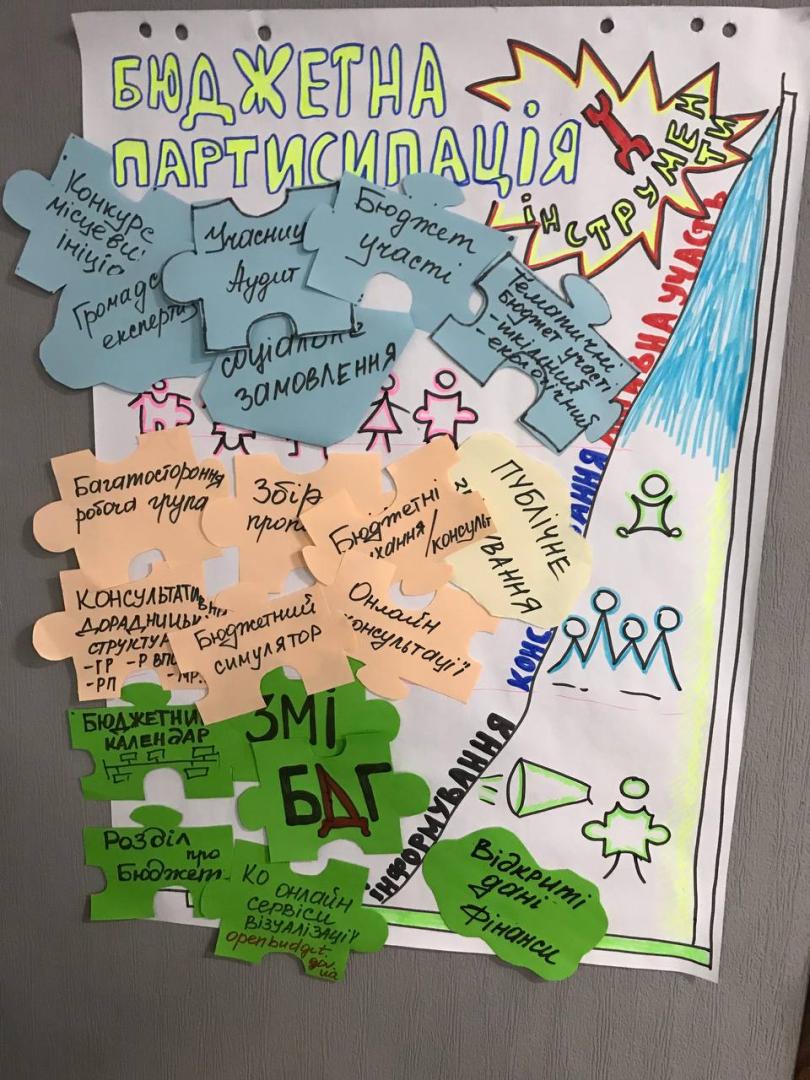 БЮДЖЕТНА
ПАРТИСИПАЦІЯ
ІНСТРУМЕН
ТИ
Конкурс
місцеви
ініціа
Громадс
експерти
Учасниц
Аудит
Бюджет
участі
Тематичні
Бюджет участі
-шкільний
-екологічний
соціальне
замовлення
УЧАСТЬ
Багатосторон
робоча група
Збір
проп
Бюджетні
/консульт
ПУБЛІЧНЕ
Консультати
дорадниць
структур
-ГР
-РП
Бюджетний
симулятор
Онлайн
консультації
КОНС
Бюджетни
календар
ЗМІ
БДГ
Розділ
про
Бюджет
КО онлайн
сервіси
візуалізації
openbudget.
gov.
ua
ІНФОРМУВАННЯ
Відкриті
дані
Фінанси